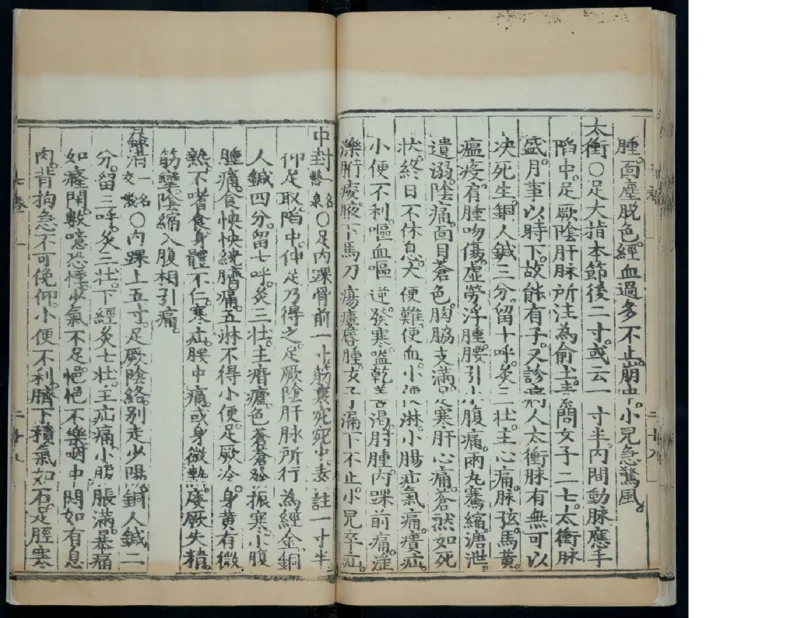 腫。面塵脫色。經血過多不止。崩中。小兒急驚風。
太衝○足大指本節後二寸。或云一寸半。內間動脉應手
陷中。足厥陰肝脉所注為俞土。素問女子二七。太衝脉
盛。月事以時下。故能有子。又診病人太衝脉有無可以
决死生。銅人鍼三分。留十呼。灸三壯。主心痛脉弦。馬黃
瘟疫。肩腫吻傷。虛勞浮腫。腰引小腹痛。兩丸騫縮。溏泄。
遺溺。陰痛。面目蒼色。胸脇支滿。足寒肝心痛。蒼然如死
狀。終日不休息。大便難。便血。小便淋。小腸疝氣痛。㿉疝。
小便不利。嘔血嘔逆。發寒。嗌乾善渴。肘腫。內踝前痛。淫
濼胻痠。腋下馬刀瘍瘻。唇腫。女子漏下不止。小兒卒疝。
中封一名懸泉○足內踝骨前一寸。筋裏宛宛中。素註一寸半
仰足取陷中。伸足乃得之。足厥陰肝脉所行為經金。銅
人鍼四分。留七呼。灸三壯。主痎瘧。色蒼蒼。發振寒。小腹
腫痛。食怏怏繞臍痛。五淋不得小便。足厥冷。身黃有微
熱。不嗜食。身體不仁。寒疝。腰中痛。或身微熱。痿厥失精。
筋攣。陰縮入腹相引痛。
蠡溝一名交儀○內踝上五寸。足厥陰絡別走少陽。銅人鍼二
分。留三呼。灸三壯。下經灸七壯。主疝痛。小腸脹滿。暴痛
如癃閉。數噫恐悸。少氣不足。悒悒不樂。咽中悶如有息
肉。背拘急不可俛仰。小便不利。臍下積氣如石。足脛寒